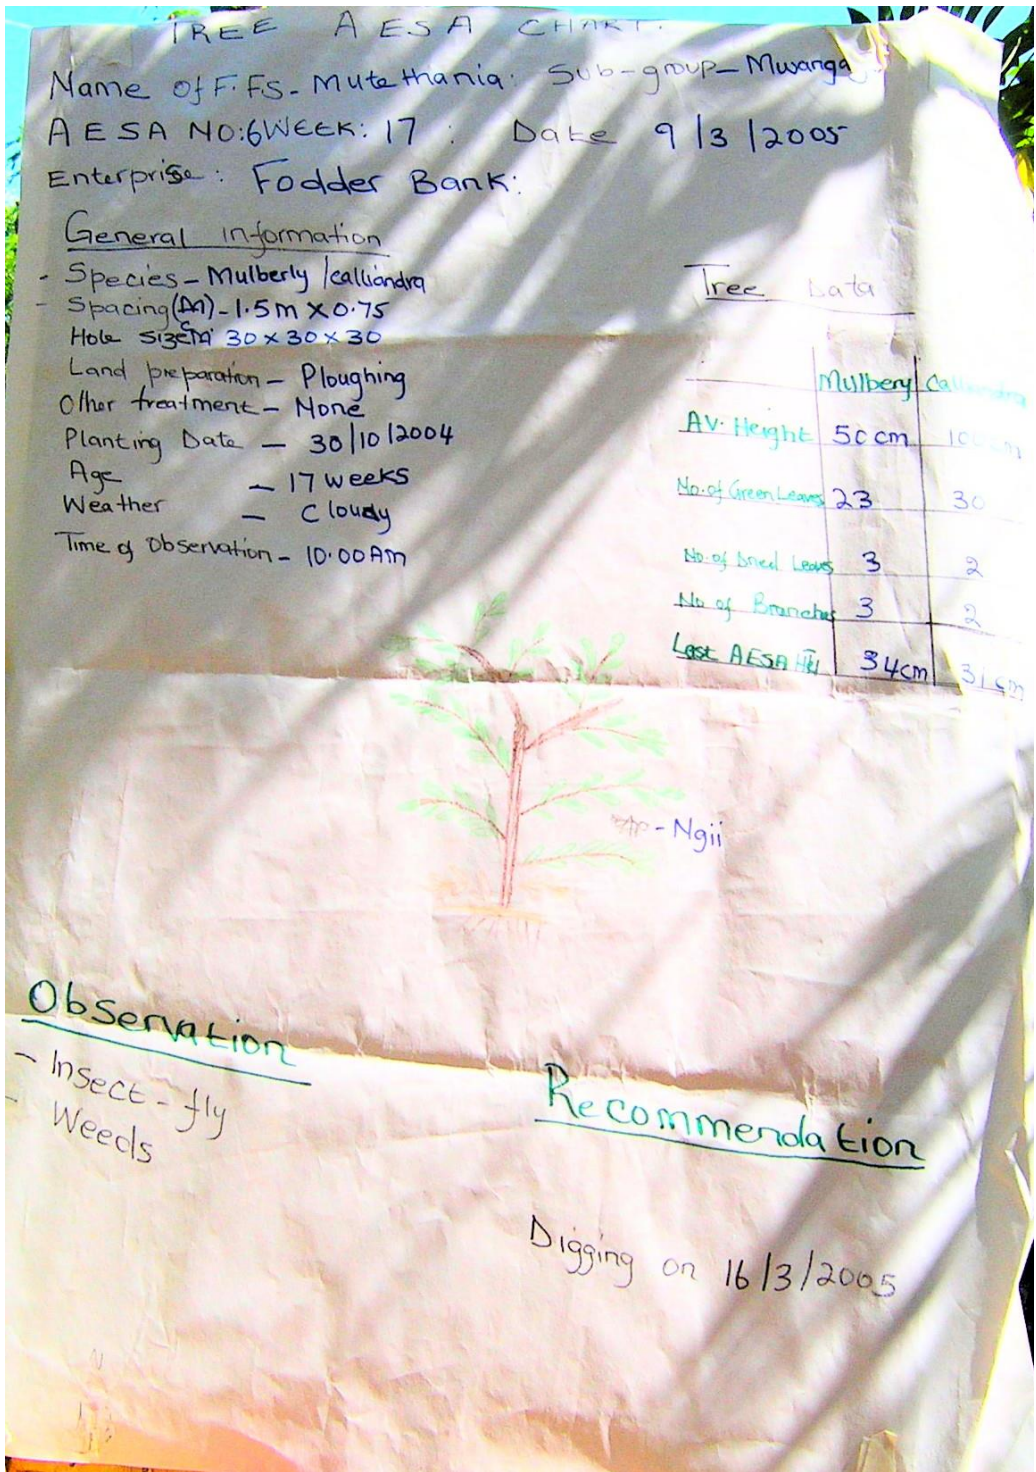 TREE AESA CHART.
Name of F.FS- Mutethania: Sub-group- Mwanga
AESA NO:6 WEEK: 17 : Date 9/3/2005
Enterprise: Fodder Bank:
General information
- Species - Mulberly /calliandra
- Spacing(M) - 1.5m x 0.75
Hole size cm 30 x 30 x 30
Land preparation - Ploughing
Other treatment - None
Planting Date - 30/10/2004
Age - 17 weeks
Weather - Cloudy
Time of Observation - 10.00Am
Tree Data
Mulbery Calliandra
AV. Height 50cm
No. of Green Leaves 23 30
No. of Dried Leaves 3 2
No of Branches 3 2
Last AESA Ht 34cm 31cm
- Ngii
Observation
- Insect - fly
- Weeds
Recommendation
Digging on 16/3/2005